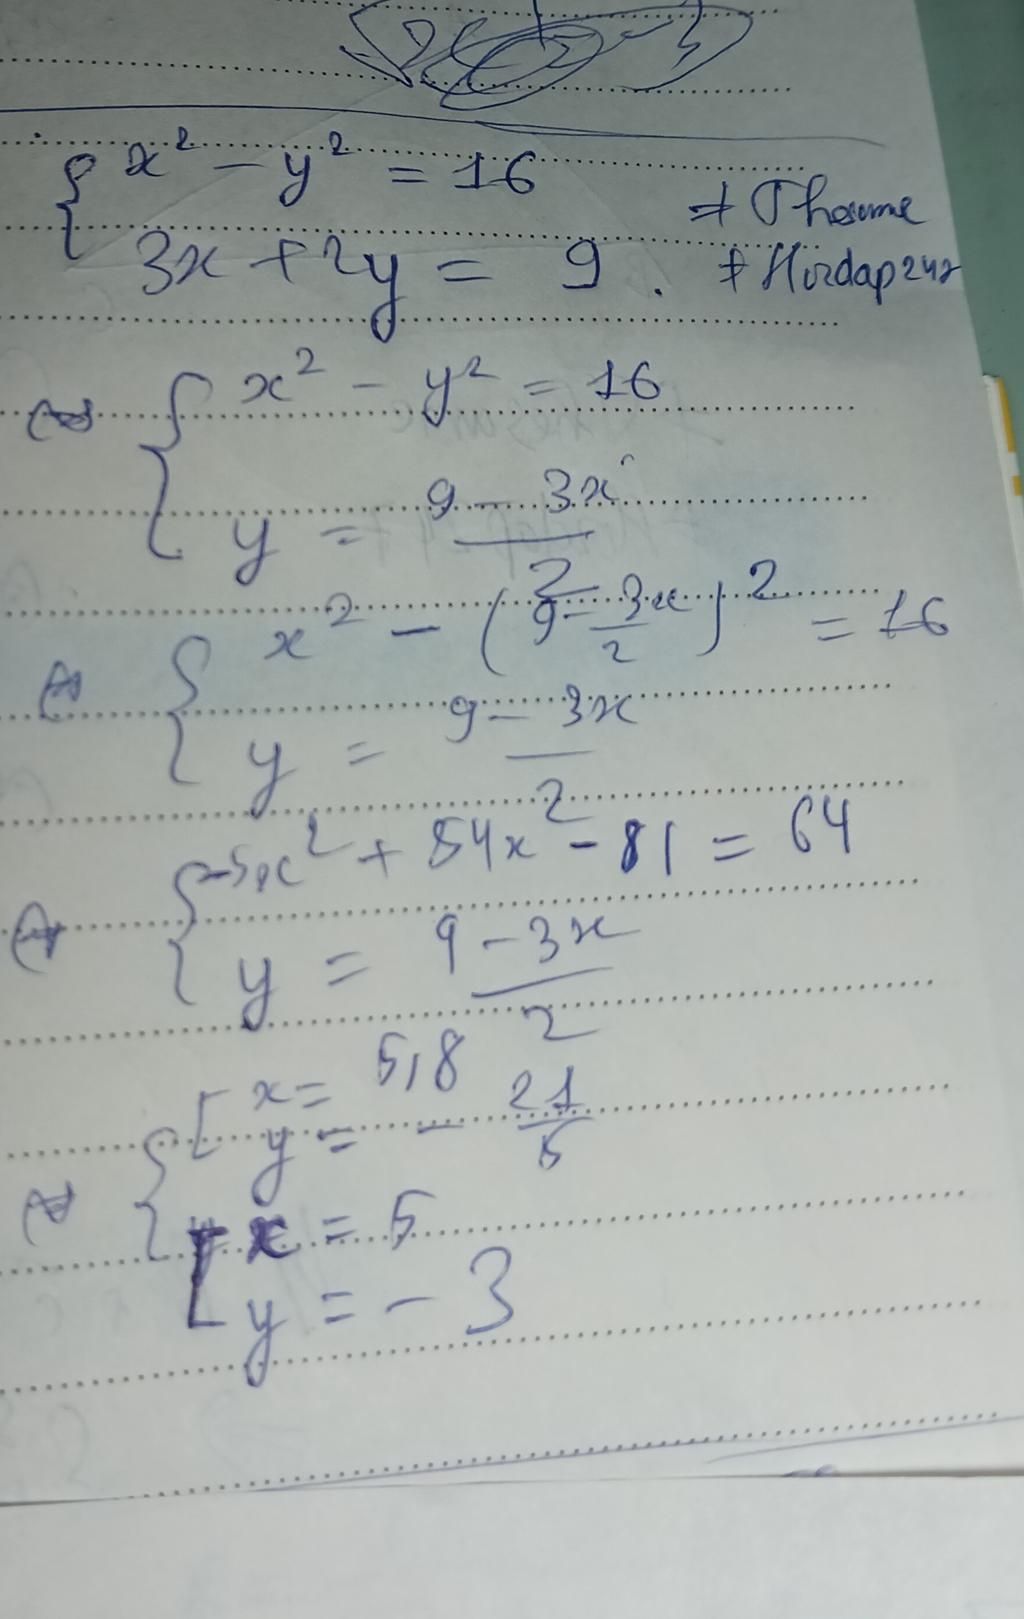 { x² - y² = 16
# Thosume
3x + 2y = 9 .
# Hoidap247
⇔ { x² - y² = 16
y = 9 - 3x / 2
⇔ { x² - (9 - 3x / 2)² = 16
y = 9 - 3x / 2
⇔ { -5x² + 54x - 81 = 64
y = 9 - 3x / 2
⇔ { [ x = 5,8
y = - 21 / 5
[ x = 5
y = - 3